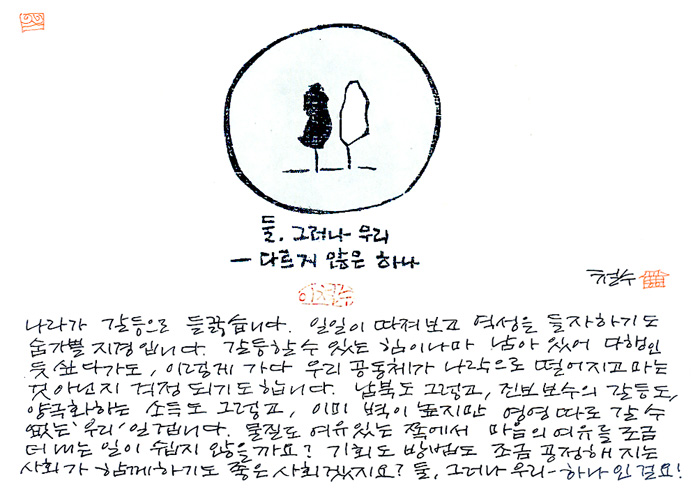 둘, 그러나 우리
— 다르지 않은 하나
철수
이철수
나라가 갈등으로 들끓습니다. 일일이 따져보고 역성을 들자하기도
숨가쁠 지경입니다. 갈등할 수 있는 힘이나마 남아 있어 다행인
듯 싶다가도, 이렇게 가다 우리 공동체가 나락으로 떨어지고 마는
것 아닌지 걱정되기도 합니다. 남북도 그렇고, 진보 보수의 갈등도,
양극화하는 소득도 그렇고, 이미 벽이 높지만 영영 따로 갈 수
없는 '우리' 일겝니다. 물질도 여유있는 쪽에서 마음의 여유를 조금
더 내는 일이 쉽지 않을까요? 기회도 방법도 조금 공정해 지는
사회가 함께하기도 좋은 사회겠지요? 둘, 그러나 우리-하나인 걸요!